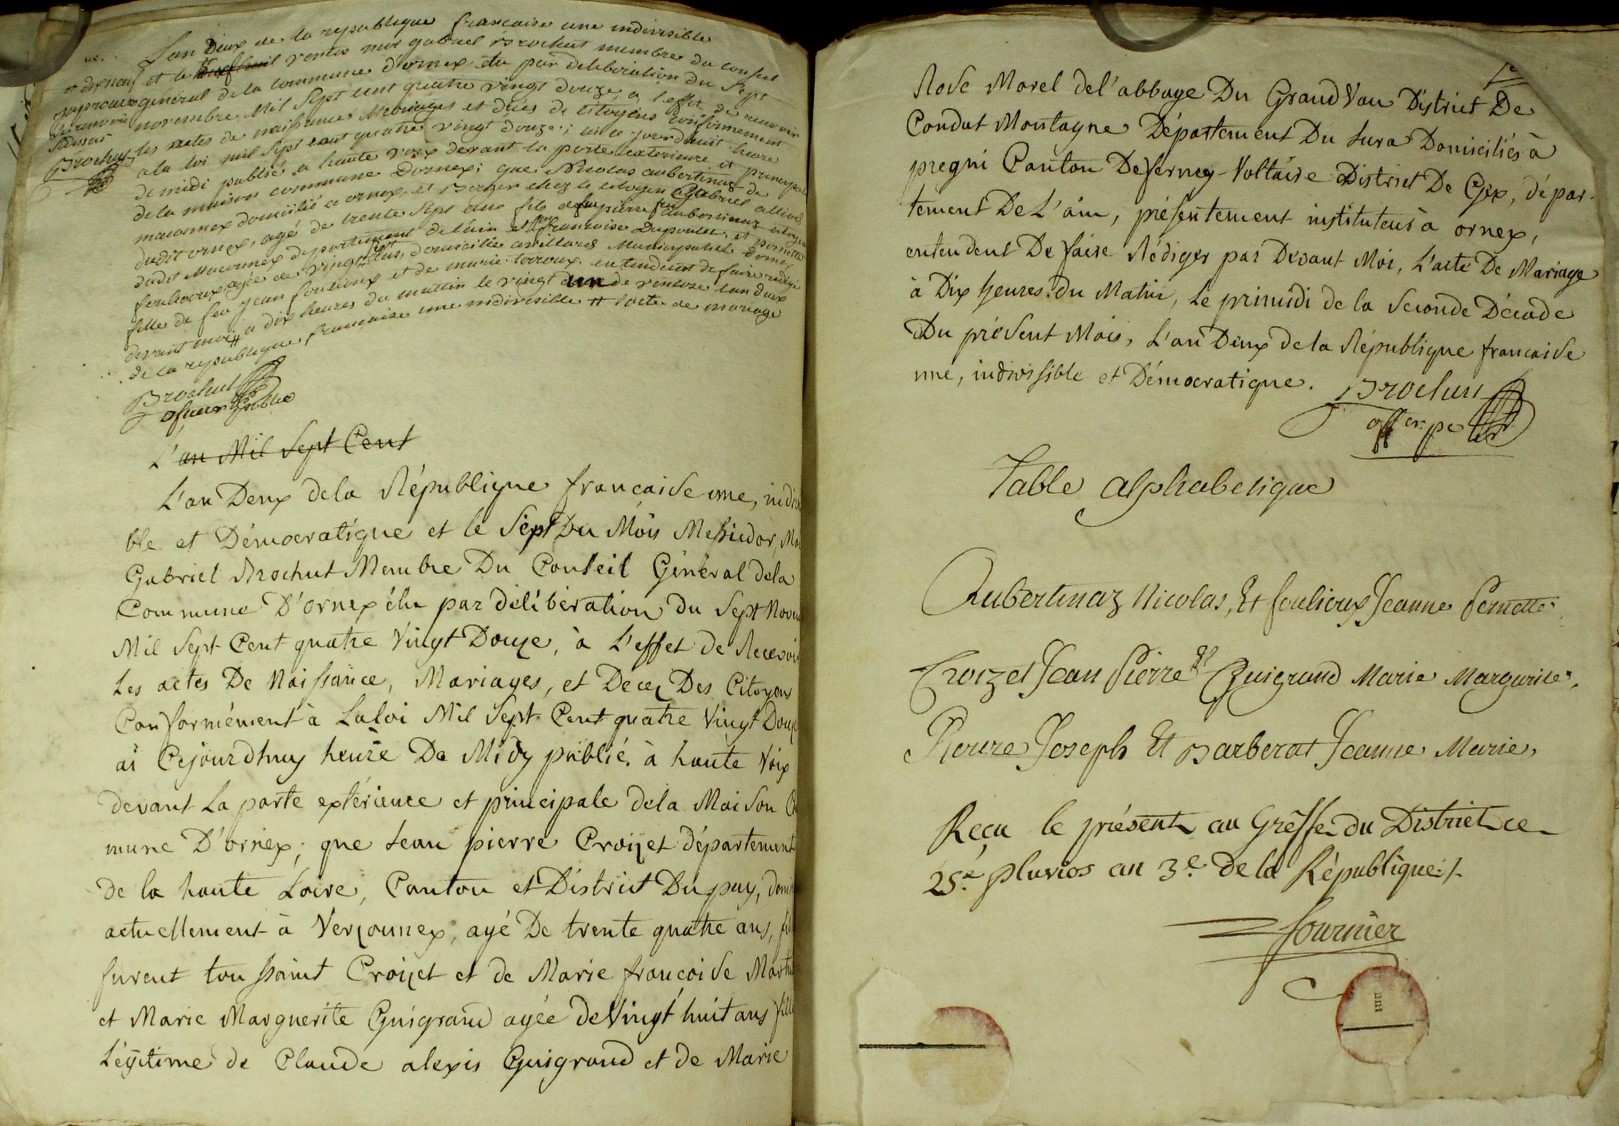 L'an Deux de la republique francaise une indivisible
et le ventos moi gabriel Brochut membre du conseil
general de la commune d'ornex elu par deliberation du Sept
novembre Mil Sept cent quatre vingt douze a l'effet de recevoir
les actes de naissance Mariages et deces de citoyens conformement
a la loi mil Sept cent quatre vingt douze; ai ce jourdhuit heure
de midi publié a haute voix devant la porte exterieure et principale
de la maison commune dornex; que Nicolas aubertinaz de
maconnex domicilié a ornex et Berger chez le citoyen Gabriel
dudit ornex, agé de trente Sept ans fils de feu pierre aubertinaz
et francoise Dupontet, et pernette
foulioux agée de vingt domiciliée
fille de feu jean foulioux et de marie entendent de faire rediger
devant moi a dix heures du matin le vingt un de ventose lan deux
de la republique francaise une indivisible # l'acte de mariage
approuvé
Brochut
Brochut
officier public
L'an Mil Sept Cent
L'an Deux de la République francaise une, indivi
ble et Démocratique et le Sept Du Mois Messidor, Moi
Gabriel Brochut Membre Du Conseil Général de la
Commune D'ornex élu par délibération du Sept Nove
Mil Sept Cent quatre Vingt Douze, à L'effet de Recevoir
Les actes De Naissance, Mariages, et Decez Des Citoyens
Conformément à La loi Mil Sept Cent quatre Vingt Douze
ai Cejourdhuy heure De Midy publié à haute Voix
devant La porte extérieure et principale dela Maison Co
mune D'ornex; que Jean pierre Croizet département
de la haute Loire, Canton et District Du puy, domi
actuellement à Versonnex, agé De trente quatre ans, fil
furent toussaint Croizet et de Marie francoise
et Marie Marguerite Guigrand agée de Vingt huit ans fille
Légitime de Claude alexis Guigrand et de Marie
Rose Morel de l'abbaye Du Grand Vau District De
Condat Montagne Département Du Jura Domiciliés à
pregni Canton De ferney-Voltaire District De Gex, dépar-
tement De L'ain, présentement instituteurs à ornex,
entendent De faire Rédiger par Devant Moi, L'acte De Mariage
à Dix heures du Matin, Le primidi de la Seconde Décade
Du présent Mois, L'an Deux de la République francaise
une, indivissible et Démocratique.
Brochut
offer. pc
Table alphabetique
Aubertinaz Nicolas, Et foulioux Jeanne Pernette.
Croizet Jean Pierre Et Guigrand Marie Margurite.
Pierre Joseph Et Barberat Jeanne Marie,
Reçu le présent au Greffe du District ce
25e. pluvios an 3e. de la République ./.
fournier